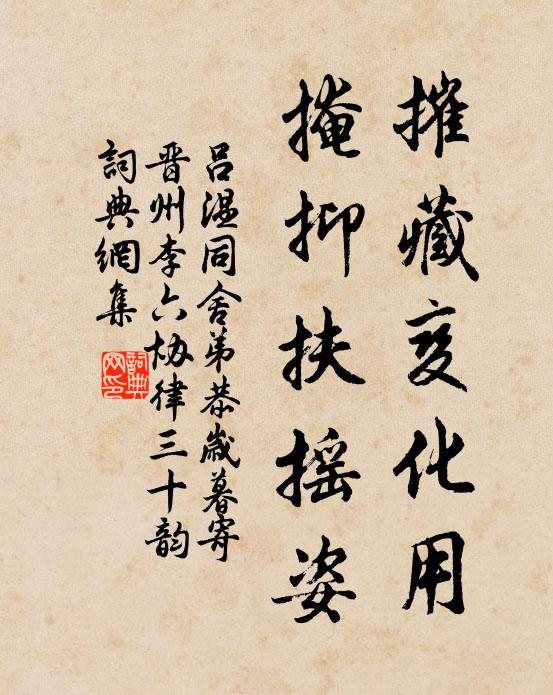 摧藏变化用
掩抑扶摇姿
吕温同舍弟恭岁暮寄
晋州李六协律三十韵
词典网集
词典网印